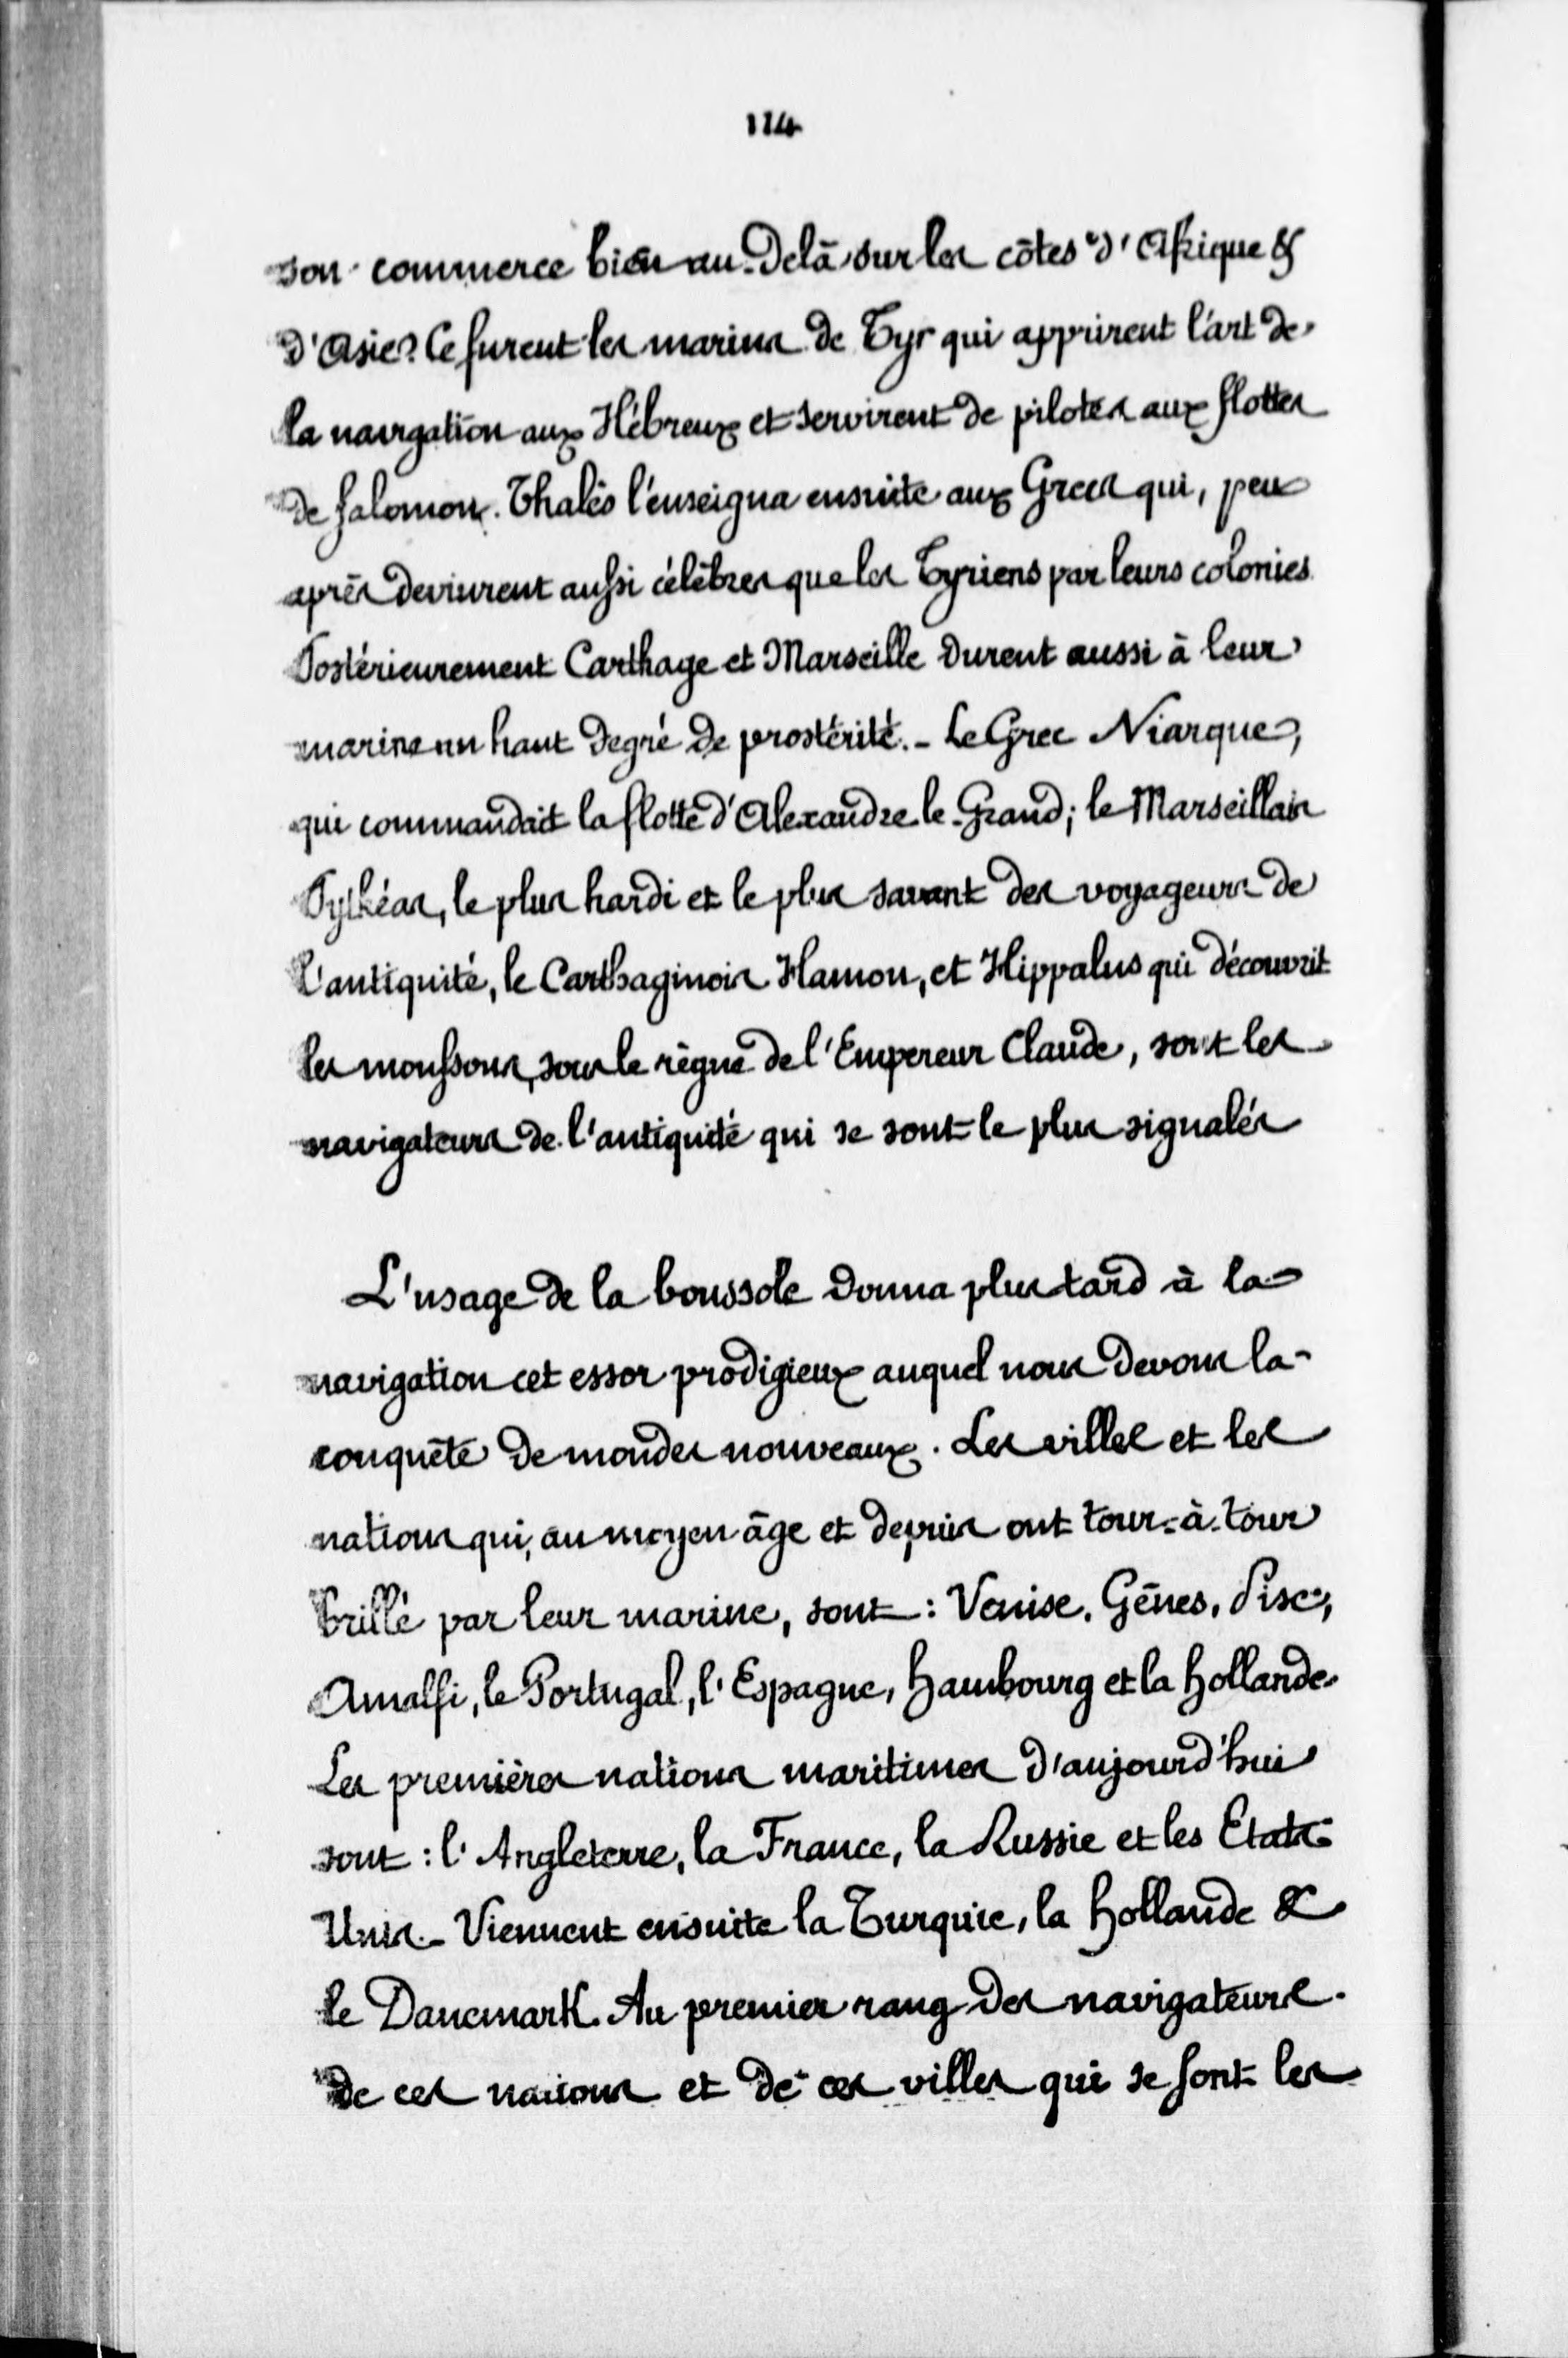 114
son commerce bien au-delà sur les côtes d'Afrique &
d'Asie? Ce furent les marins de Tyr qui apprirent l'art de
la navigation aux Hébreux et servirent de pilotes aux flottes
de Salomon. Thalès l'enseigna ensuite aux Grecs qui, peu
après devinrent aussi célèbres que les Tyriens par leurs colonies
Postérieurement Carthage et Marseille durent aussi à leur
marine un haut degré de prostérité. - Le Grec Niarque,
qui commandait la flotte d'Alexandre-le-Grand; le Marseillais
Pythéas, le plus hardi et le plus savant des voyageurs de
l'antiquité, le Carthaginois Hamon, et Hippalus qui découvrit
les moussons, sous le règne de l'Empereur Claude, sont les
navigateurs de l'antiquité qui se sont le plus signalés
L'usage de la boussole donna plus tard à la
navigation cet essor prodigieux auquel nous devons la
conquête de mondes nouveaux. Les villes et les
nations qui, au moyen âge et depuis ont tour-à-tour
brillé par leur marine, sont : Venise, Gênes, Pise,
Amalfi, le Portugal, l'Espagne, Hambourg et la Hollande.
Les premières nations maritimes d'aujourd'hui
sont : l'Angleterre, la France, la Russie et les Etats-
Unis. - Viennent ensuite la Turquie, la Hollande &
le Danemark. Au premier rang des navigateurs
de ces nations et de ces villes qui se sont les